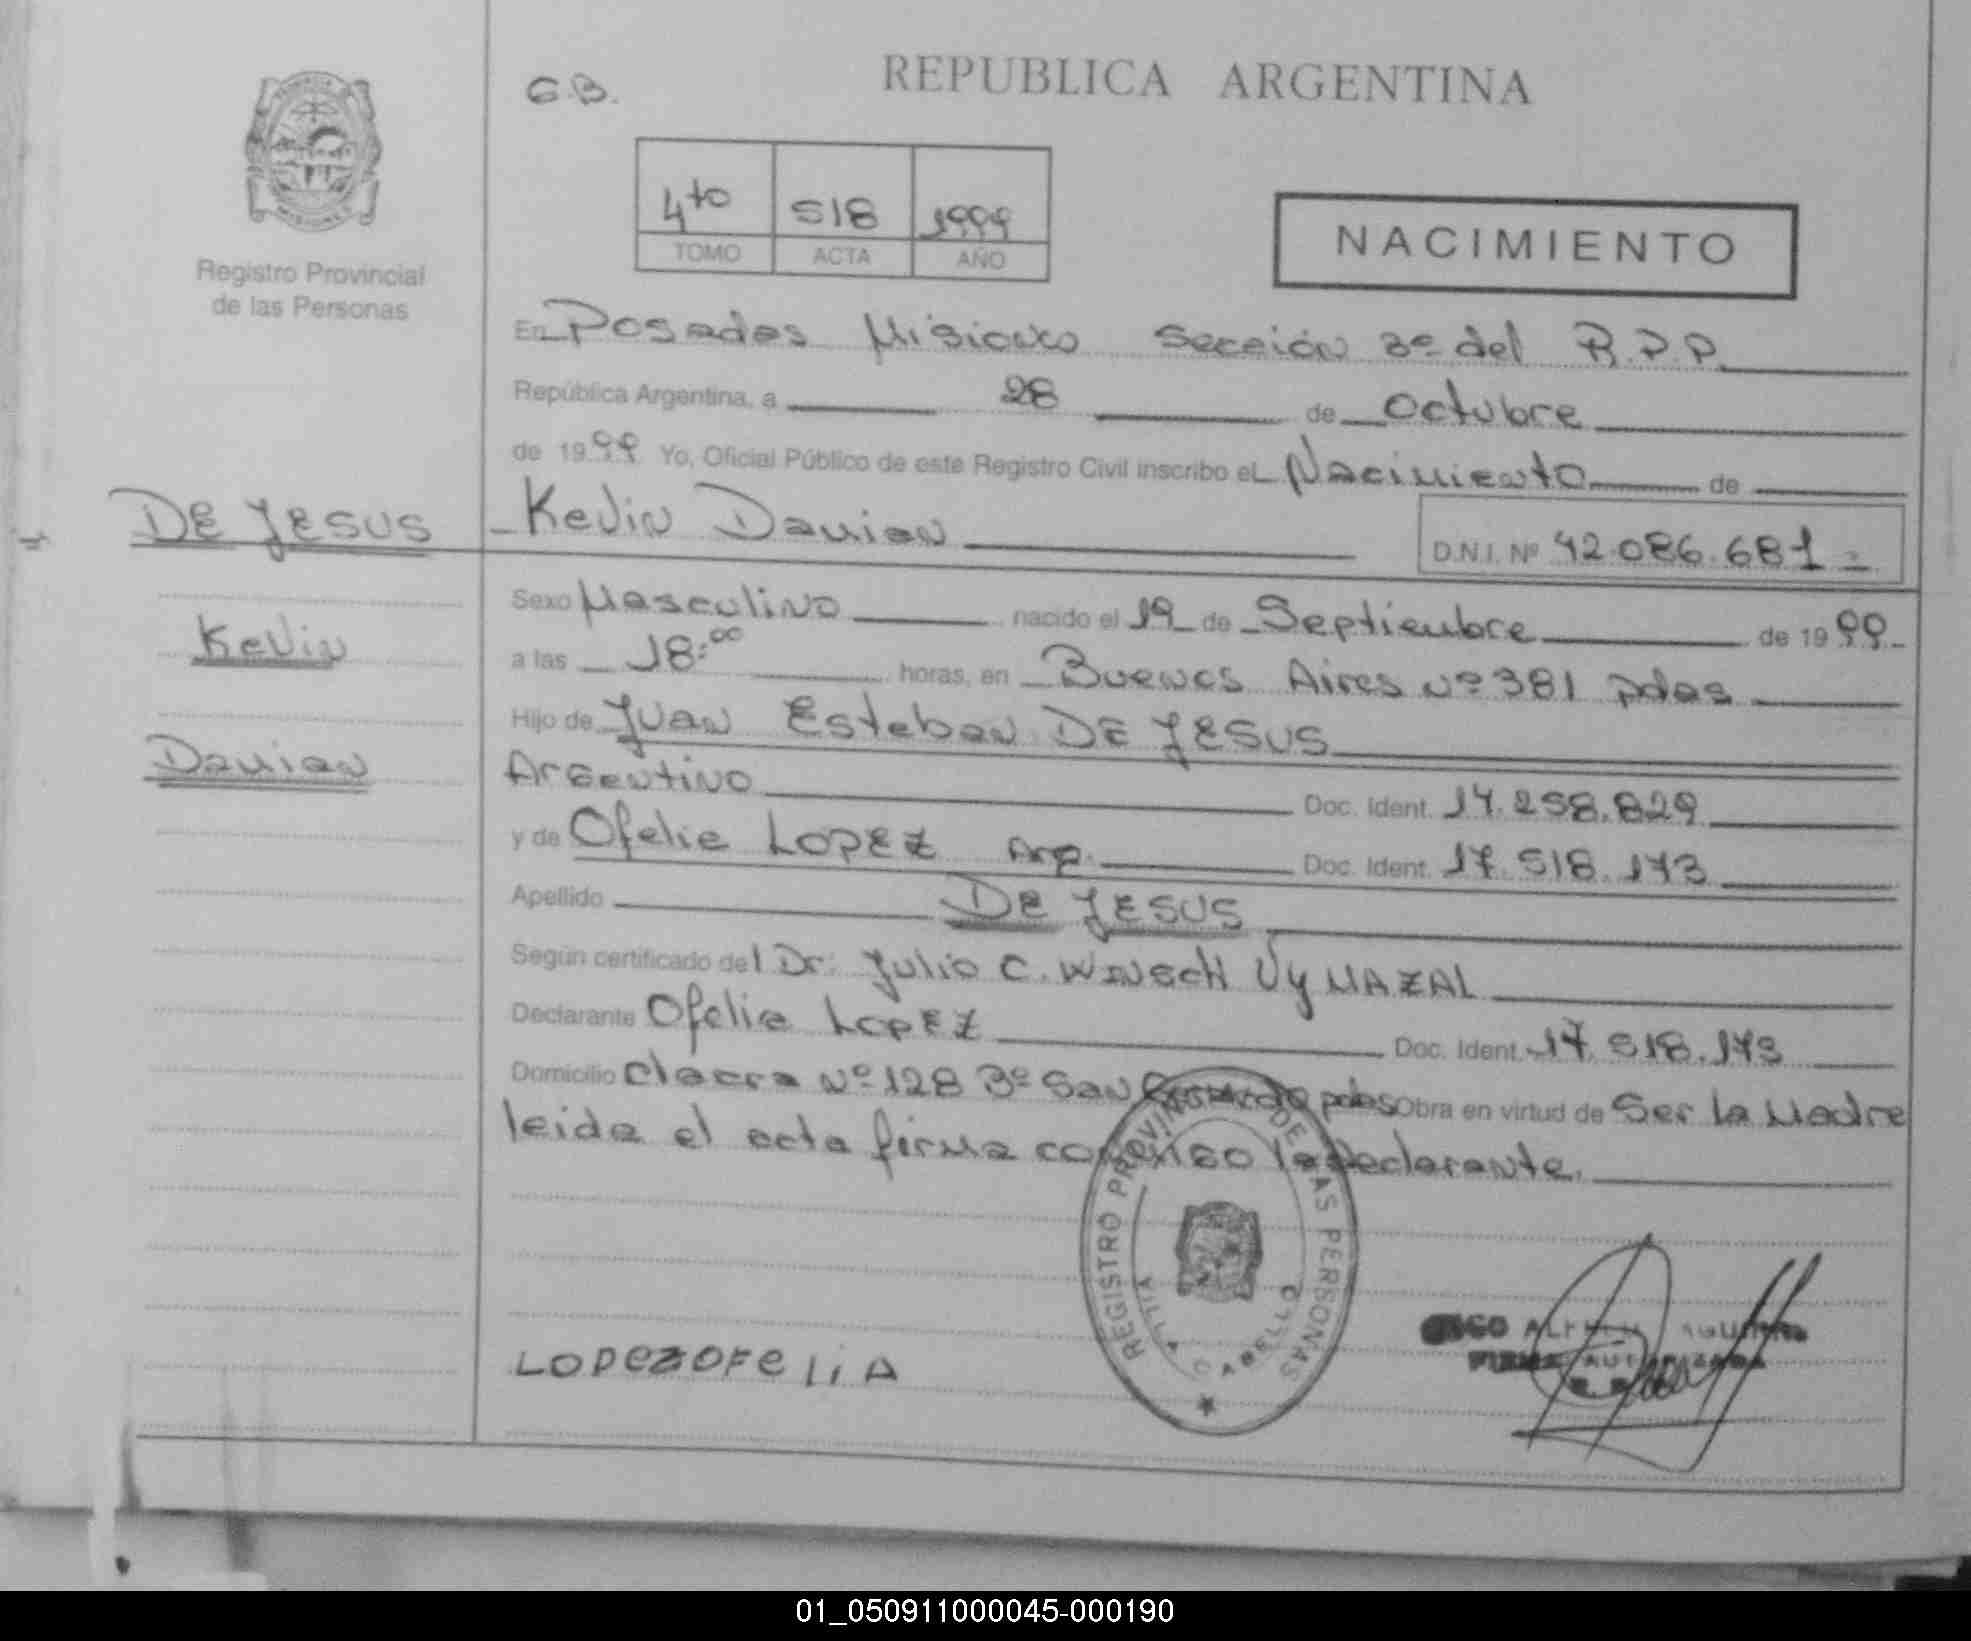 REPUBLICA ARGENTINA
G.B.
4to 518 1999
TOMO ACTA AÑO
NACIMIENTO
MISIONES
Registro Provincial
de las Personas
En Posadas Misiones Sección 3º del R.P.P.
República Argentina, a 28 de Octubre
de 1999 Yo, Oficial Público de este Registro Civil inscribo el Nacimiento de
DE JESUS Kevin Damian D.N.I. Nº 42.086.681
Sexo Masculino nacido el 19 de Septiembre de 1999
Kevin
a las 18:00 horas, en Buenos Aires Nº 381 pdas
Hijo de Juan Esteban DE JESUS
Damian
Argentino Doc. Ident. 14.258.829
y de Ofelia LOPEZ Arg. Doc. Ident. 17.518.173
Apellido DE JESUS
Según certificado del Dr: Julio C. WINSCH UyMAZAL
Declarante Ofelia LopEZ Doc. Ident. 17.518.173
Domicilio Chacra Nº 128 Bº San pdas Obra en virtud de Ser la Madre
leida el acta firma conmigo la declarante.
REGISTRO PROVINCIAL DE LAS PERSONAS
VILLA CABELLO
LOPEZOFELIA
FIRMA AUTORIZADA
01_050911000045-000190